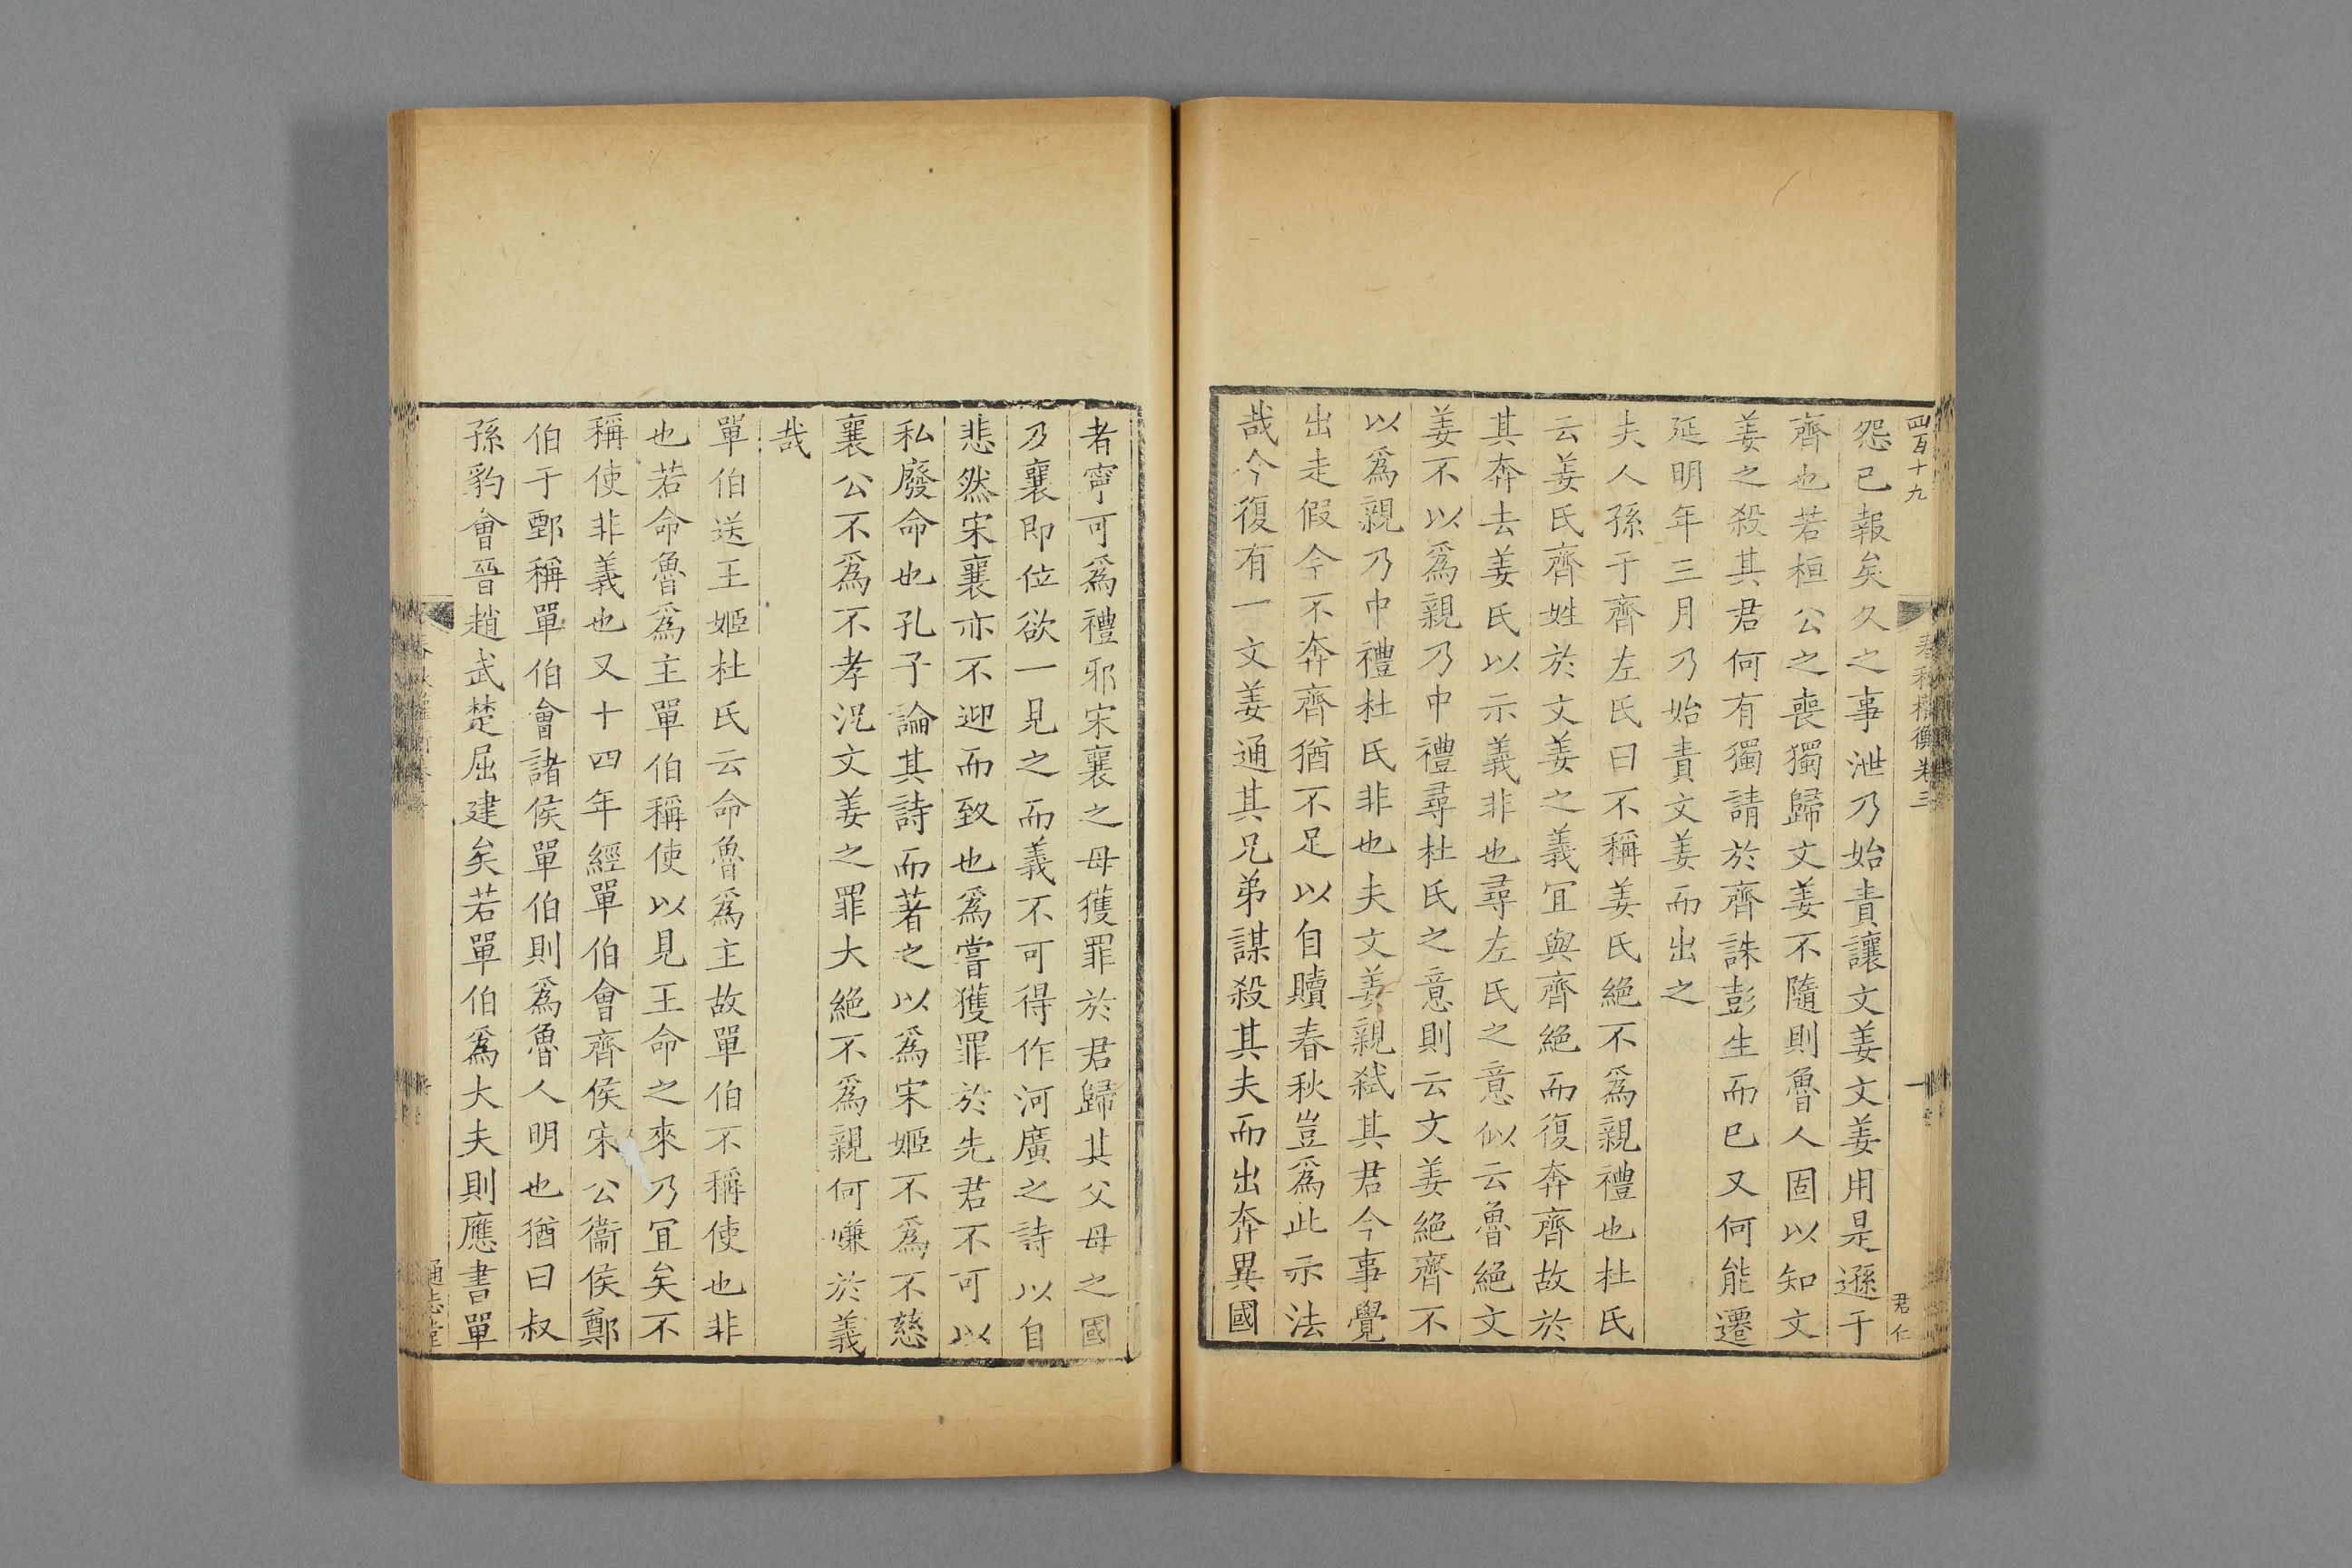 四百十九
春秋權衡卷三
一
君仁
怨已報矣久之事泄乃始責讓文姜文姜用是遜于
齊也若桓公之喪獨歸文姜不隨則魯人固以知文
姜之殺其君何有獨請於齊誅彭生而已又何能遷
延明年三月乃始責文姜而出之
夫人孫于齊左氏曰不稱姜氏絕不為親禮也杜氏
云姜氏齊姓於文姜之義宜與齊絕而復奔齊故於
其奔去姜氏以示義非也尋左氏之意似云魯絕文
姜不以為親乃中禮尋杜氏之意則云文姜絕齊不
以為親乃中禮杜氏非也夫文姜親弒其君今事覺
出走假令不奔齊猶不足以自贖春秋豈為此示法
哉今復有一文姜通其兄弟謀殺其夫而出奔異國
者寧可為禮邪宋襄之母獲罪於君歸其父母之國
及襄即位欲一見之而義不可得作河廣之詩以自
悲然宋襄亦不迎而致也為嘗獲罪於先君不可以
私廢命也孔子論其詩而著之以為宋姬不為不慈
襄公不為不孝況文姜之罪大絕不為親何嫌於義
哉
單伯送王姬杜氏云命魯為主故單伯不稱使也非
也若命魯為主單伯稱使以見王命之來乃宜矣不
稱使非義也又十四年經單伯會齊侯宋公衞侯鄭
伯于鄄稱單伯會諸侯單伯則為魯人明也猶曰叔
孫豹會晉趙武楚屈建矣若單伯為大夫則應書單
通志堂